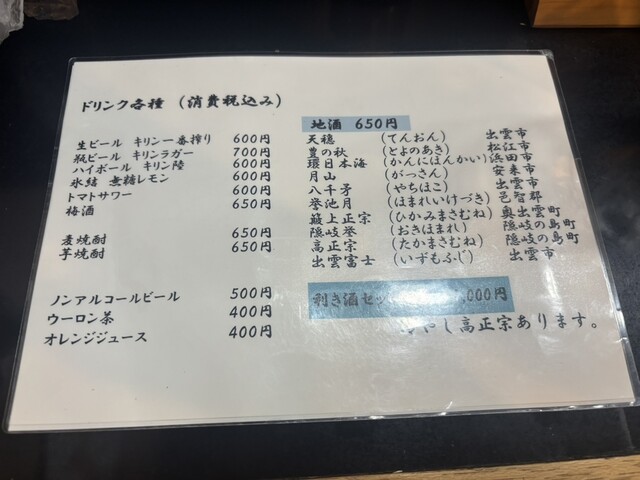 ドリンク各種 (消費税込み)
生ビール キリン一番搾り 600円
瓶ビール キリンラガー 700円
ハイボール キリン陸 600円
氷結 無糖レモン 600円
トマトサワー 600円
梅酒 650円
麦焼酎 650円
芋焼酎 650円
ノンアルコールビール 500円
ウーロン茶 400円
オレンジジュース 400円
地酒 650円
天穏 (てんおん) 出雲市
豊の秋 (とよのあき) 松江市
環日本海 (かんにほんかい) 浜田市
月山 (がっさん) 安来市
八千矛 (やちほこ) 出雲市
誉池月 (ほまれいけづき) 邑智郡
簸上正宗 (ひかみまさむね) 奥出雲町
隠岐誉 (おきほまれ) 隠岐の島町
高正宗 (たかまさむね) 隠岐の島町
出雲富士 (いずもふじ) 出雲市
利き酒セッ ,000円
やし高正宗あります。